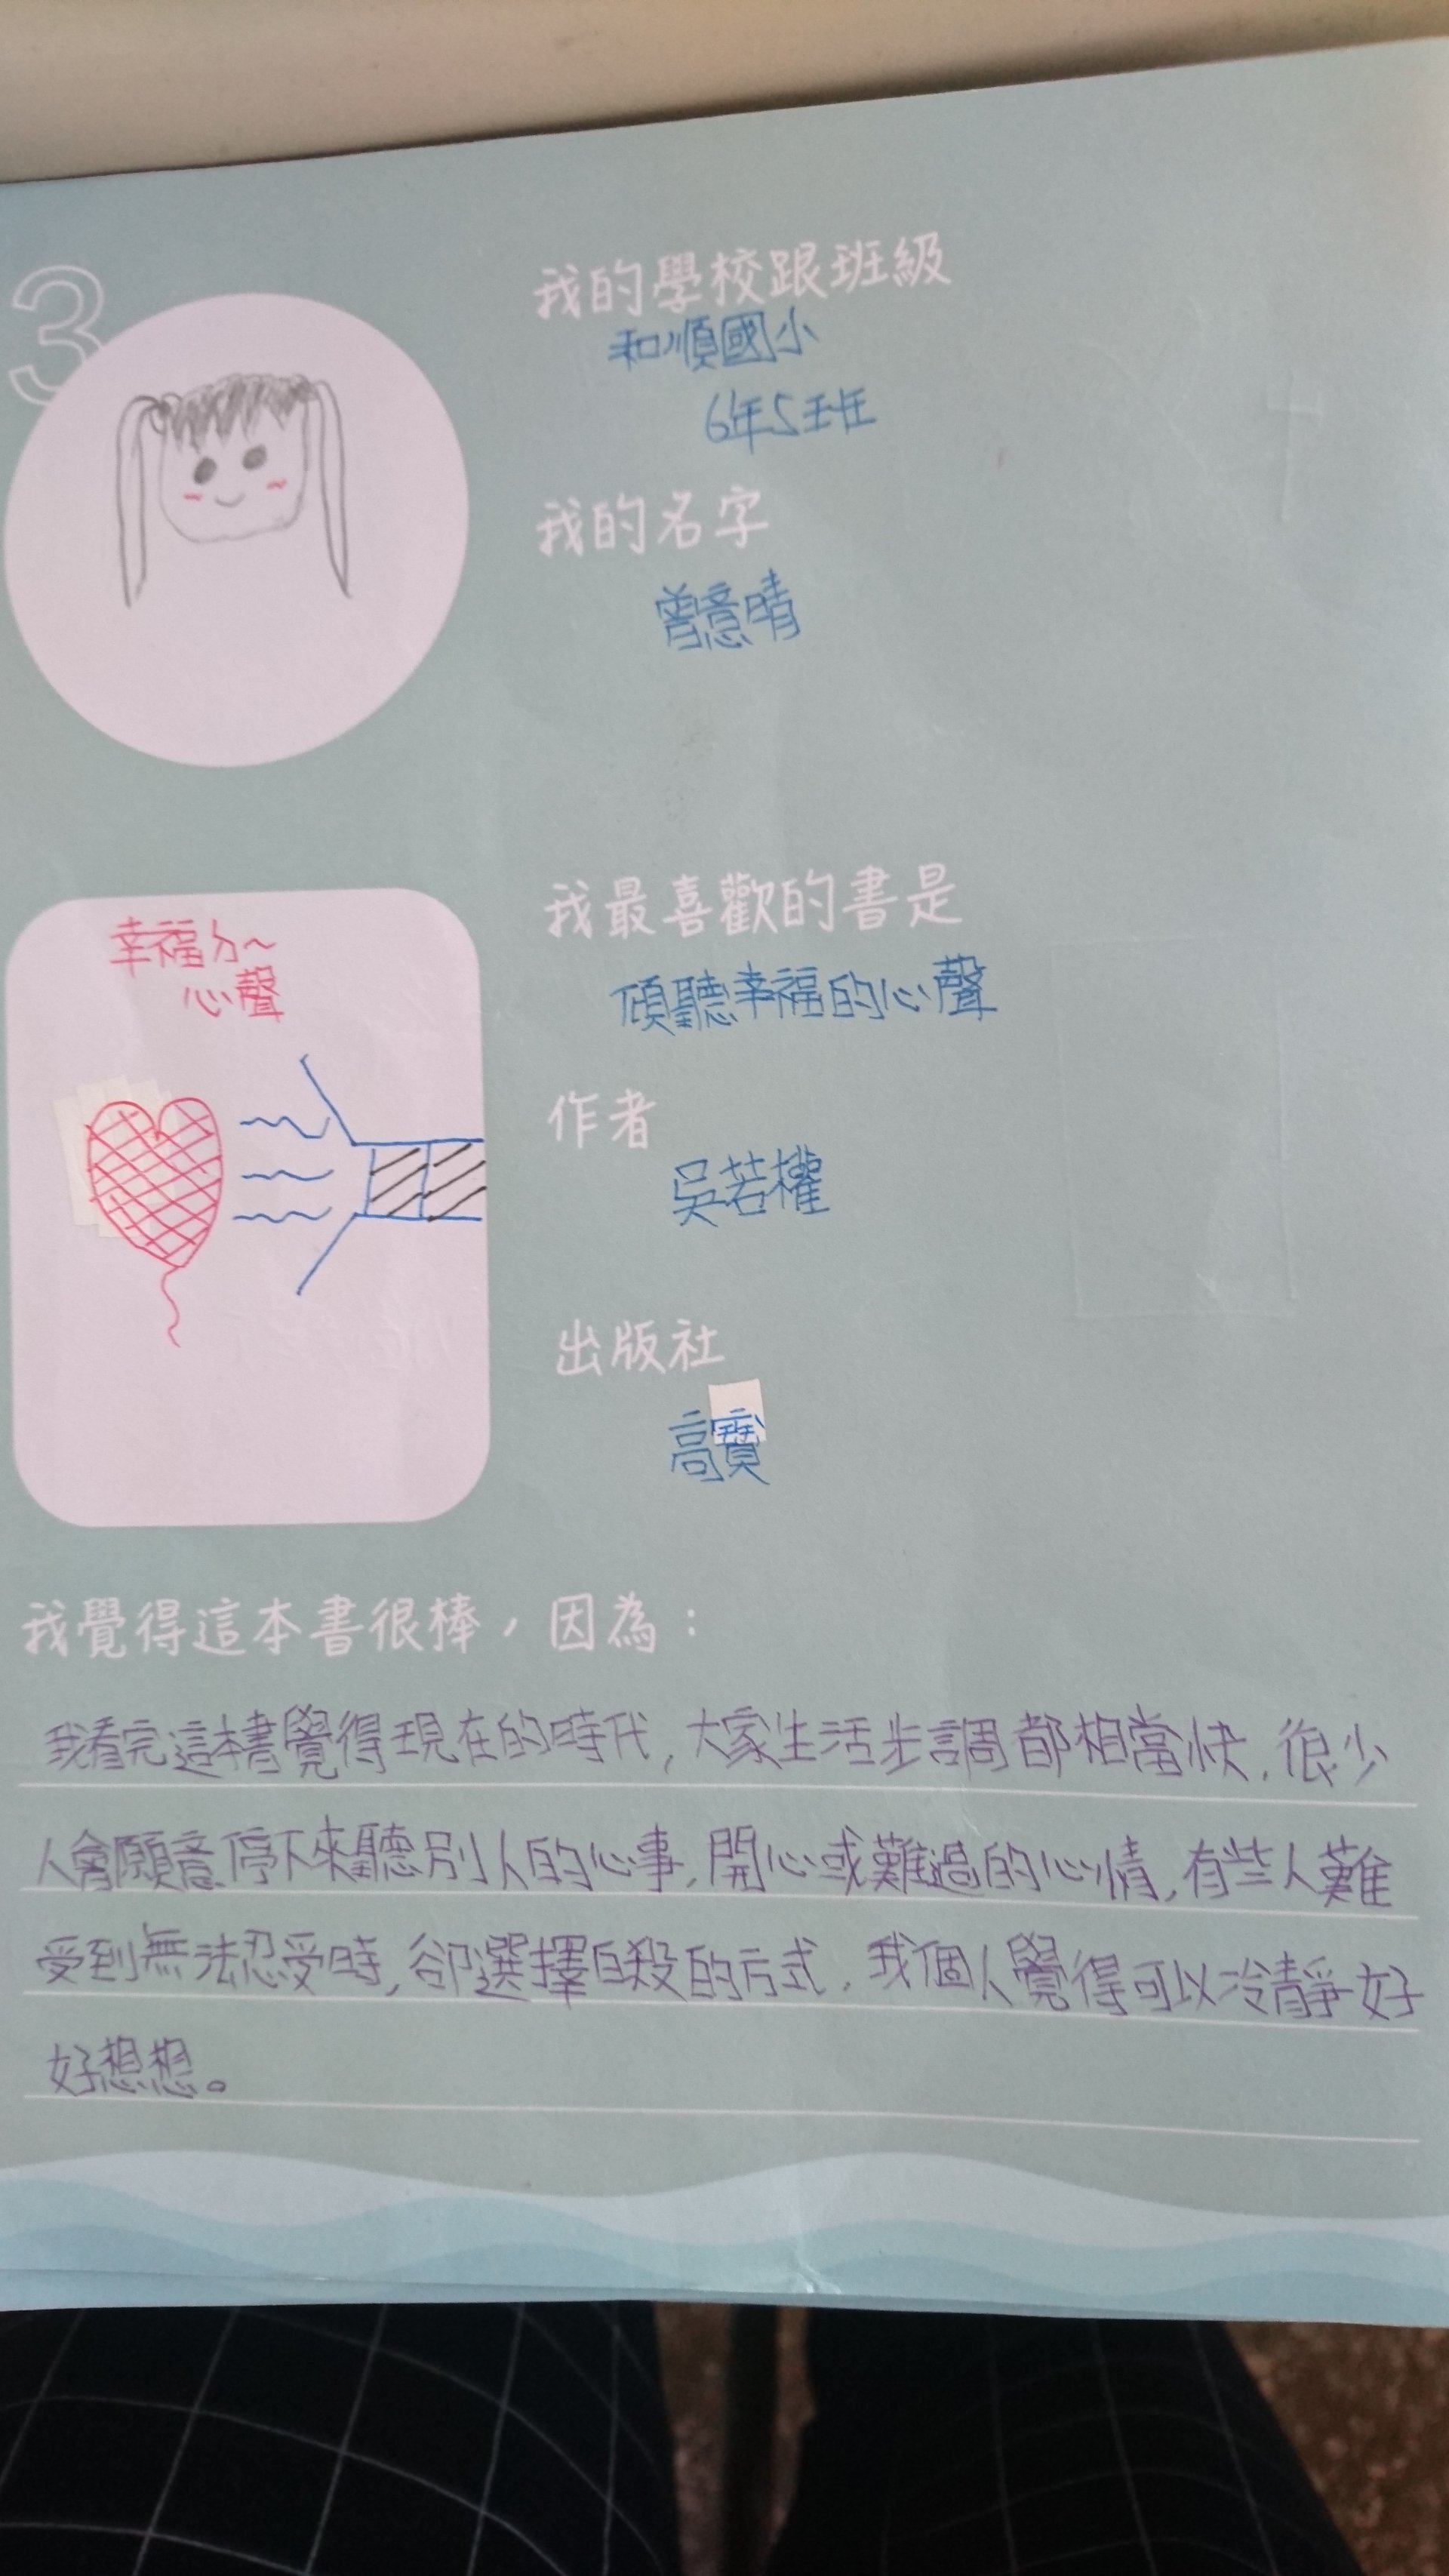 3
我的學校跟班級
和順國小
6年5班
我的名字
曾意晴
幸福ㄉ~
心聲
我最喜歡的書是
傾聽幸福的心聲
作者
吳若權
出版社
高寶
我覺得這本書很棒，因為：
我看完這本書覺得現在的時代,大家生活步調都相當快,很少
人會願意停下來聽別人的心事,開心或難過的心情,有些人難
受到無法忍受時,卻選擇自殺的方式,我個人覺得可以冷靜好
好想想。